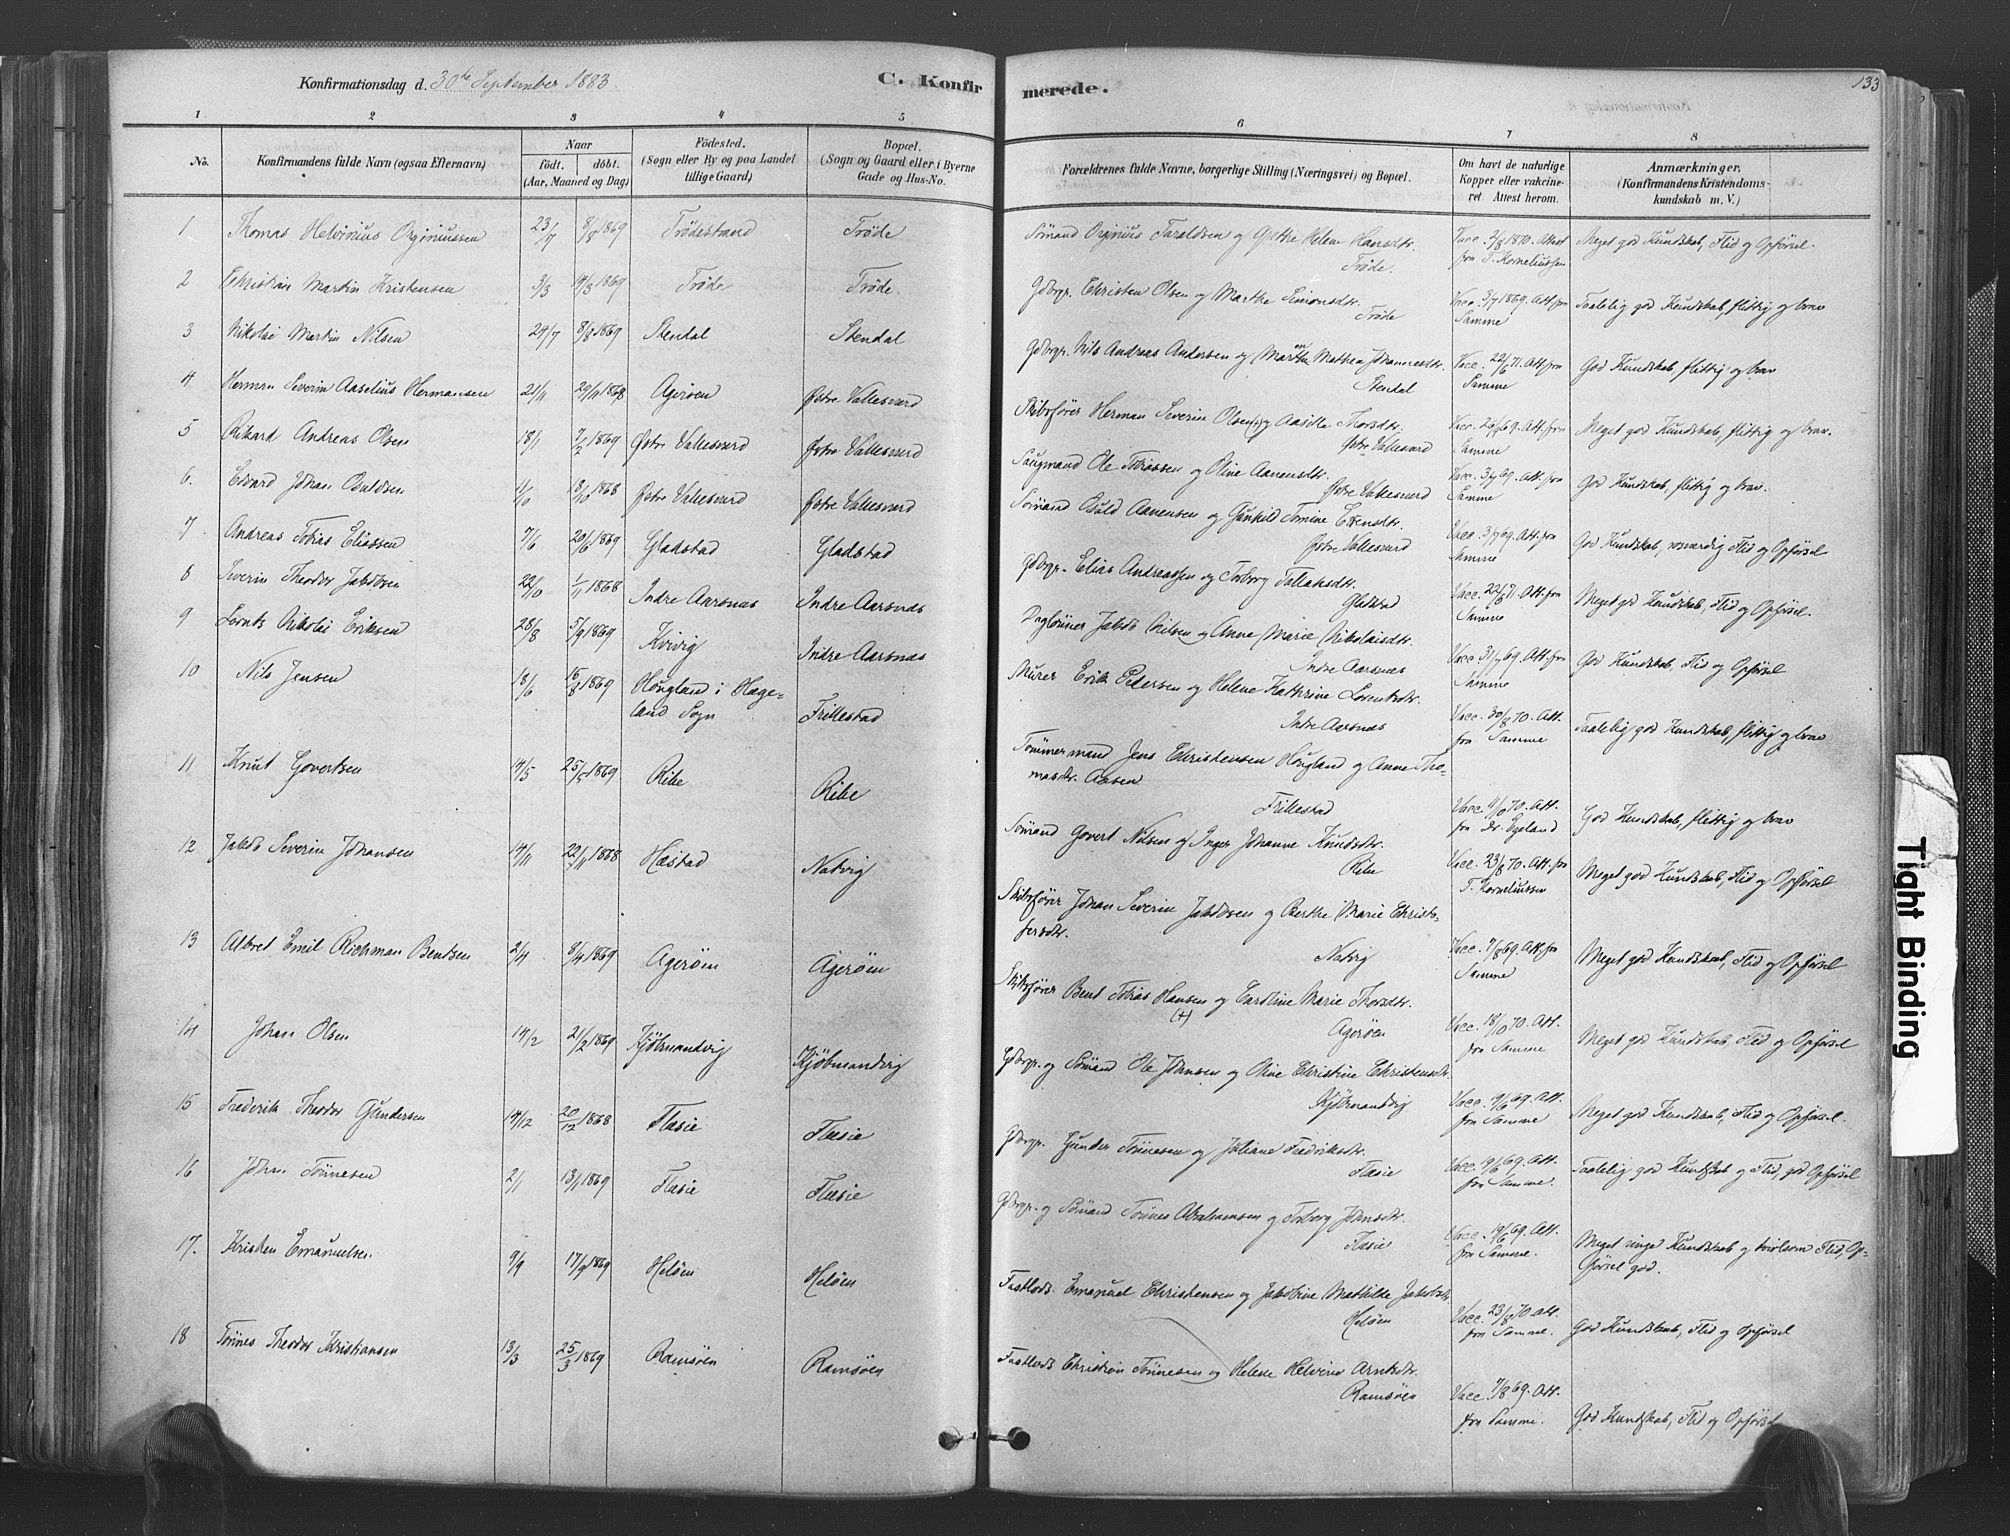 Konfirmationsdag d. 30te September 1883. C. Konfir merede. 133
1 2 3 4 5 6 7 8
No. Konfirmandens fulde Navn (ogsaa Efternavn) Naar født. døbt. (Aar, Maaned og Dag) Fødested. (Sogn eller By og paa Landet tillige Gaard) Bopæl. (Sogn og Gaard eller i Byerne Gade og Hus-No. Forældrenes fulde Navne, borgerlige Stilling (Næringsvei) og Bopæl. Om havt de naturlige Kopper eller vakcineret Attest herom. Anmærkninger. (Konfirmandens Kristendomskundskab m. V.)
1 Thomas Helvinius Orginiussen 23/7 8/8 1869 Trødestrand Trøde Sømand Orginius Taraldsen og Grethe Helene Hansdtr. Trøde. Vacc. 2/8 1870. Attest fra T. Korneliussen Meget god Kundskab, Flid og Opførsel.
2 Christian Martin Kristensen 3/3 14/3 1869 Trøde Trøde Gdbrgr. Christen Olsen og Marthe Simonsdtr. Trøde Vacc. 3/7 1869. Att. fra Samme Taalelig god Kundskab, flittig og brav
3 Nikolai Martin Nilsen 24/7 8/8 1869 Stendal Stendal Gdbrgr. Nils Andreas Andersen og Marthe Mathea Johannesdtr. Stendal Vacc. 22/6 71. Att. fra Samme God Kundskab, flittig og brav
4 Herman Severin Aaselius Hermansen 21/11 29/11 1868 Agerøen Østre Vallesverd Skibsfører Herman Severin Olsen (+) og Aasille Thorsdtr. Østre Vallesverd Vacc. 26/6 69. Att. fra Samme Meget god Kundskab, flittig og brav.
5 Rikard Andreas Olsen 18/1 7/2 1869 Østre Vallesverd Østre Vallesverd Saugmand Ole Tobiassen og Oline Aanensdtr. Østre Vallesverd Vacc. 3/7 69. Att. fra Samme God Kundskab, flittig og brav.
6. Edvard Johan Osuldsen 1/10 18/10 1868 Østre Vallesverd Østre Vallesverd Sømand Osuld Aanensen og Gunhild Tomine Ekensdtr. Østre Vallesverd Vacc. 3/7 69. Att. fra Samme God Kundskab, rosværdig Flid og Opførsel
7 Andreas Tobias Eliassen 7/6 20/6 1869 Gladstad Gladstad Gdbrgr. Elias Andreassen og Torborg Tallaksdtr. Gladstad Vacc. 22/6 71. Att. fra Samme Meget god Kundskab, Flid og Opførsel.
8 Severin Theodor Jakobsen 22/10 1/11 1868 Indre Aarsnes Indre Aarsnes Daglønner Jakob Nilsen og Anne Marie Nikolaisdtr. Indre Aarsnes Vacc. 31/7 69. Att. fra Samme God Kundskab, Flid og Opførsel
9 Lornts Nikolai Eriksen 28/8 5/9 1869 Kvivig Indre Aarsnes Murer Erik Pedersen og Helene Kathrine Lorentsdtr. Indre Aarsnes Vacc. 30/8 70. Att. fra Samme Taalelig god Kundskab, flittig og brav
10 Nils Jensen 18/6 15/8 1869 Hougland i Hægeland Sogn Frillestad Tømmermand Jens Christensen Hougland og Anne Thomasdtr. Aasen Frillestad Vacc. 11/10 70. Att. fra Dr. Egeland God Kundskab, flittig og brav
11 Knut Govertsen 14/5 25/5 1869 Ribe Ribe Sømand Govert Nilsen og Inger Johanne Knudsdtr. Ribe Vacc. 23/8 70. Att. fra T. Korneliussen Meget god Kundskab, Flid og Opførsel
12 Jakob Severin Johansen 14/11 22/11 1868 Hæstad Natvig Skibsfører Johan Severin Jakobsen og Berthe Marie Christofersdtr. Natvig Vacc. 7/8 69. Att. fra Samme Meget god Kundskab, Flid og Opførsel
13 Albret Emil Richman Bentsen 2/4 8/4 1869 Agerøen Agerøen Skibsfører Bent Tobias Hansen (+) og Caroline Marie Thorsdtr. Agerøen Vacc. 18/10 70. Att. fra Samme Meget god Kundskab, Flid og Opførsel
14 Johan Olsen 14/2 21/2 1869 Kjøbmandvig Kjøbmandvig Gdbrgr. og Sømand Ole Johnsen og Oline Christine Christensdtr. Kjøbmandvig Vacc. 19/6 69. Att. fra Samme Meget god Kundskab, Flid og Opførsel.
15 Frederik Theodor Gundersen 14/12 20/12 1868 Flæsie Flæsie Gdbrgr. Gunder Tønnesen og Juliane Fredriksdtr. Flæsie Vacc. 19/6 69. Att. fra Samme. Taalelig god Kundskab og Flid, god Opførsel
16 Johan Tønnesen 2/1 13/1 1869 Flæsie Flæsie Gdbrgr. og Sømand Tønnes Abrahamsen og Torborg Johnsdtr. Flæsie Vacc. 19/6 69. Att. fra Samme. Meget ringe Kundskab og tvivlsom Flid, Opførsel god.
17. Kristen Emanuelsen 9/9 17/9 1869 Heløen Heløen Fastlods Emanuel Christensen og Jakobine Mathilde Jakobsdtr. Heløen Vacc. 23/8 70 Att. fra Samme. God Kundskab, Flid og Opførsel
18 Tønnes Theodor Kristiansen 13/3 25/3 1869 Ramsøen Ramsøen Fastlods Christian Tønnesen og Helene Helvine Arntsdtr. Ramsøen Vacc. 7/8 69. Att. fra Samme. God Kundskab, Flid og Opførsel
Tight Binding